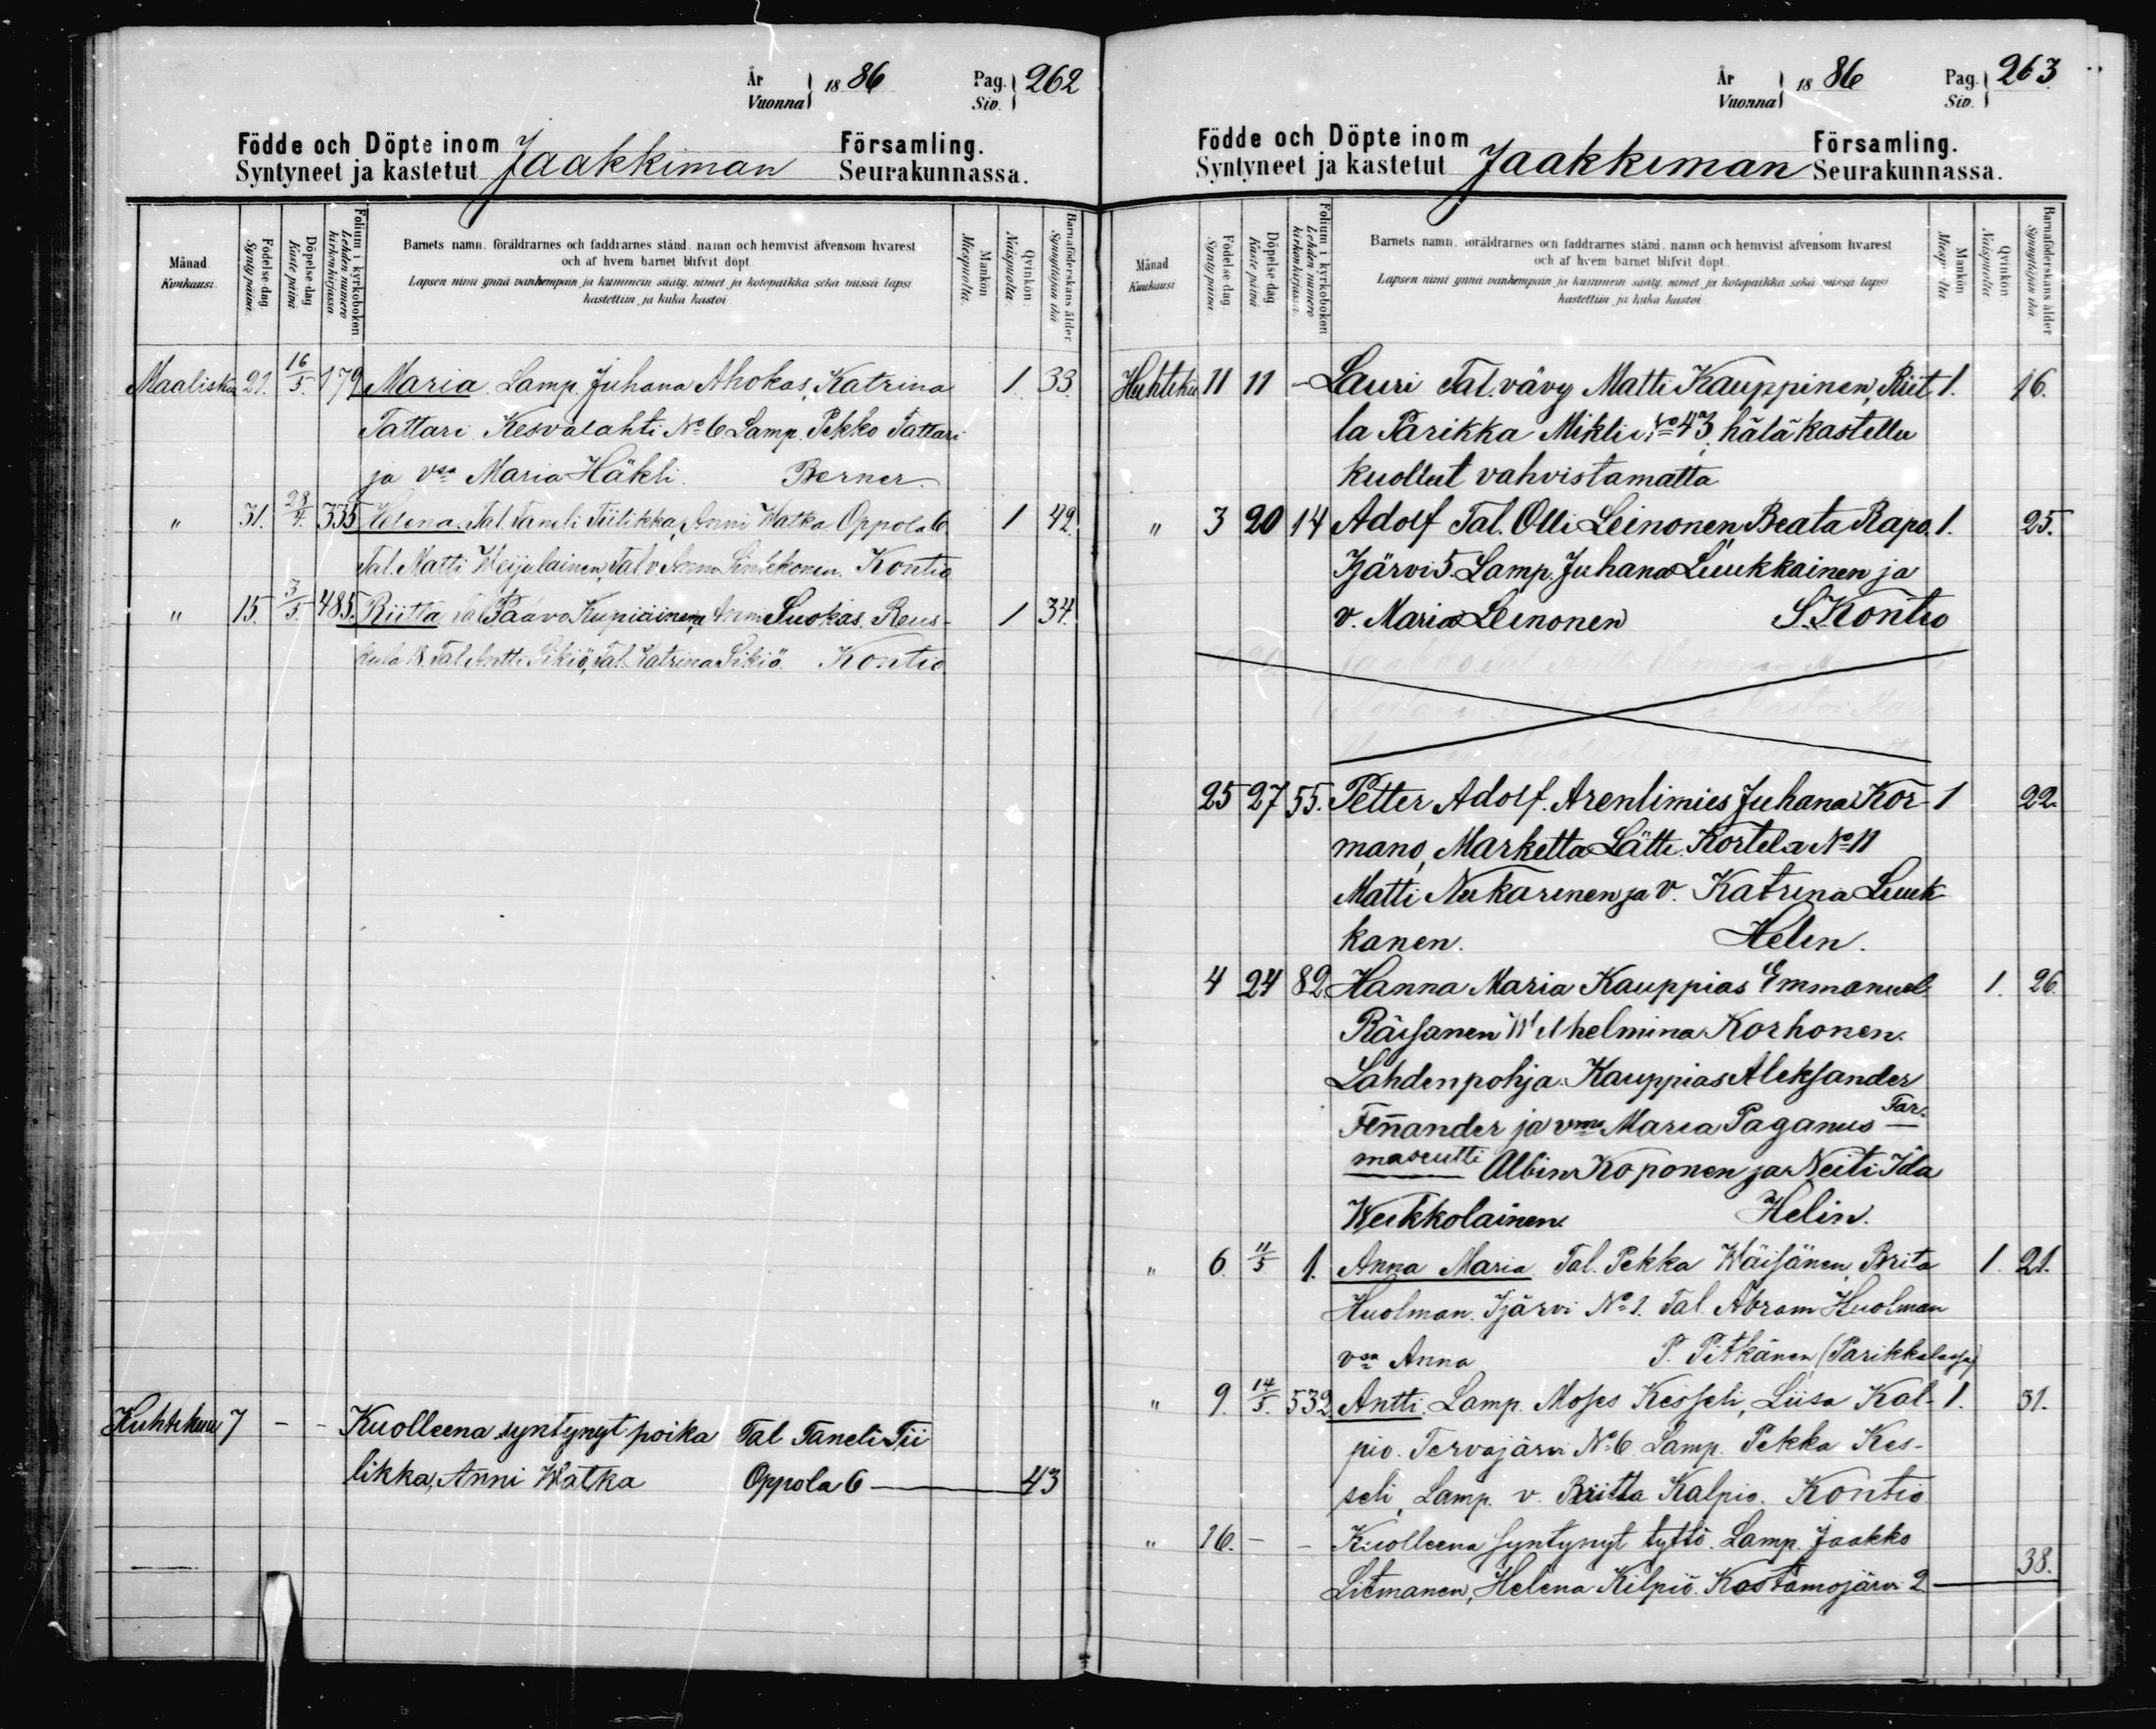 År Vuonna 1886 Pag. Siv. 262
Födde och Döpte inom Jaakkiman Församling.
Syntyneet ja kastetut Seurakunnassa.
Månad Kuukausi.
Födelse-dag Syntypäivä.
Döpelse-dag Kaste päivä
Folium i kyrkoboken Lehden numero kirkonkirjassa.
Barnets namn, föräldrarnes och faddrarnes stånd, namn och hemvist äfvensom hvarest
och af hvem barnet blifvit döpt.
Lapsen nimi ynnä vanhempain ja kummein sääty, nimet ja kotopaikka sekä missä lapsi
kastettiin ja kuka kastoi.
Mankön Miespuolta.
Qvinkön Naispuolta.
Barnaföderskans ålder Synnyttäjän ikä
Maalisku 21. 16/5. 179 Maria Lamp. Juhana Ahokas, Katrina 1. 33.
Tattari Kesvalahti No 6 Lamp. Pekko Tattari
ja vsa Maria Häkli. Berner.
" 31. 28/4. 335 Helena. Tal. Taneli Tiilikka, Anni Watka Oppola 6. 1 42.
Tal. Matti Weijalainen, Tal. v. Anna Kontio
" 15. 3/5 485. Riitta Tal Paavo Kupiainen, Anni Suokas. Reus- 1 34.
kula 18. Tal Antti Sikiö, Tal. Katrina Sikiö. Kontio
Huhtikuu 7 - - Kuolleena syntynyt poika Tal Taneli Tii
likka, Anni Watka Oppola 6 — 43
År Vuonna 1886 Pag. Siv. 263
Födde och Döpte inom Jaakkiman Församling.
Syntyneet ja kastetut Seurakunnassa.
Månad Kuukausi
Födelse dag Synty päivä
Döpelse dag Kaste päivä
Folium i kyrkoboken Lehden numero kirkonkirjassa.
Barnets namn, föräldrarnes och faddrarnes stånd, namn och hemvist äfvensom hvarest
och af hvem barnet blifvit döpt.
Lapsen nimi ynnä vanhempain ja kummein sääty, nimet ja kotopaikka sekä missä lapsi
kastettiin ja kuka kastoi.
Mankön Miespuolta
Qvinkön Naispuolta
Barnaföderskans ålder Synnyttäjän ikä.
Huhtiku 11 11 - Lauri Tal. vävy Matti Kauppinen, Riit 1. 16.
la Parikka Mikli No 43, hätäkastettu
kuollut vahvistamatta
" 3 20 14 Adolf Tal. Olli Leinonen, Beata Rapo. 1. 25.
Ijärvi 5. Lamp. Juhana Luukkainen ja
v. Maria Leinonen S. Kontio
25 27 55. Petter Adolf. Arentimies Juhana Kor- 1 22.
mano, Marketta Lätti. Kortela No 11
Matti Nukarinen ja v. Katrina Luuk
kanen. Helin.
4 24 82 Hanna Maria Kauppias Emmanuel 1. 26.
Räisänen Wilhelmina Korhonen.
Lahdenpohja. Kauppias Aleksander
Fennander ja vmo Maria Paganus Far-
maseutti Albin Koponen ja Neiti Ida
Weikkolainen Helin.
" 6. 11/5 1. Anna Maria Tal. Pekka Wäisänen, Brita 1. 21.
Huolman. Ijärvi No 1. Tal. Abram Huolman
vsa Anna P. Pitkänen (Parikkalassa)
" 9. 14/5. 532 Antti. Lamp. Moses Kesseli, Liisa Kal- 1. 31.
pio. Tervajärvi No 6 Lamp. Pekka Kes-
seli, Lamp. v. Riitta Kalpio. Kontio
" 16. - - Kuolleena syntynyt tyttö. Lamp. Jaakko
Litmanen, Helena Kilpiö. Kostamojärvi 2 — 38.